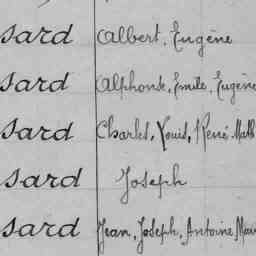 sard Albert, Eugène
sard Alphonse, Emile, Eugène
sard Charles, Louis, René, Math
sard Joseph
sard Jean, Joseph, Antoine, Mari